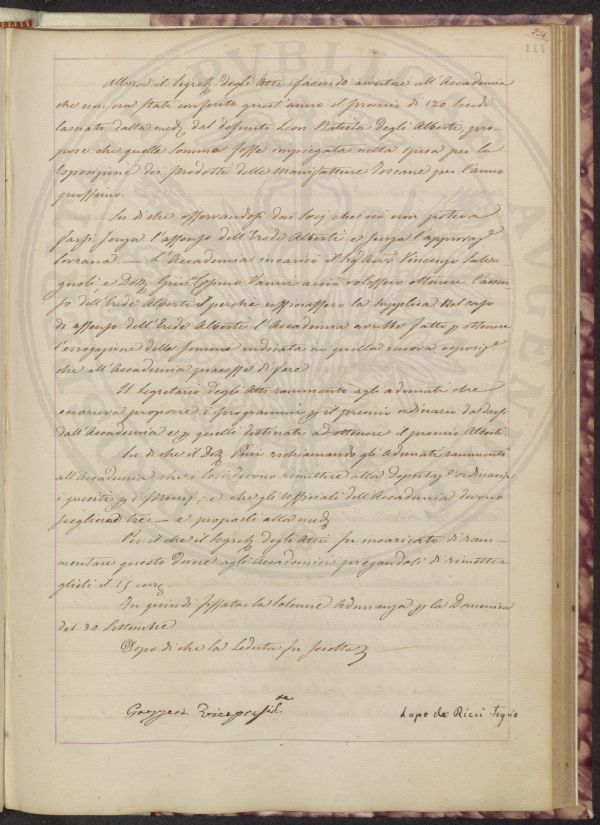 234
114
Allora il Segret. degli Atti facendo avvertire all'Accademia
che non era stato conferito quest'anno il premio di 120 Scudi
lasciato dalla med. dal defunto Leon Batista degli Alberti, pro-
pose che quella somma fosse impiegata nella spesa per la
Esposizione dei Prodotti delle Manifatture Toscane per l'anno
prossimo.
Su di che osservandosi dai Socj che ciò non poteva
farsi senza l'assenso dell'Erede Alberti e senza l'approvaz.
Sovrana. — L'Accademia incaricò il Sig. Avv. Vincenzo Salva-
gnoli e Dott. Gius. Vanni acciò volessero ottenere l'assen-
so dell'Erede Alberti e perché la supplica nel caso
di assenso dell'Erede Alberti l'Accademia avrebbe fatto p ottenere
l'erogazione della somma indicata in quella nuova esposiz.
che all'Accademia piacesse di fare
Il Segretario degli Atti rammentò agli adunati che
occorreva proporre i programmi p il premio ordinario da darsi
dall'Accademia e p quelli destinati ad ottenere il premio Alberti.
Su di che il Dott. richiamando gli Adunati rammentò
all'Accademia che i Socj devono rimettere alla Deputaz. ordinaria
i quesiti p i Premj, e che gli Uffiziali dell'Accademia devono
sceglierne tre — e proporli alla med.
Per il che il Segret. degli Atti fu incaricato di ram-
mentare questo dovere agli Accademici pregandoli di rimetter-
glieli il 15 corr.
Fu quindi fissata la Solenne Adunanza p la Domenica
del 30 Settembre
Dopo di che la Seduta fu sciolta
Gazzeri Vicepresid.te
Lapo de Ricci Seg.rio